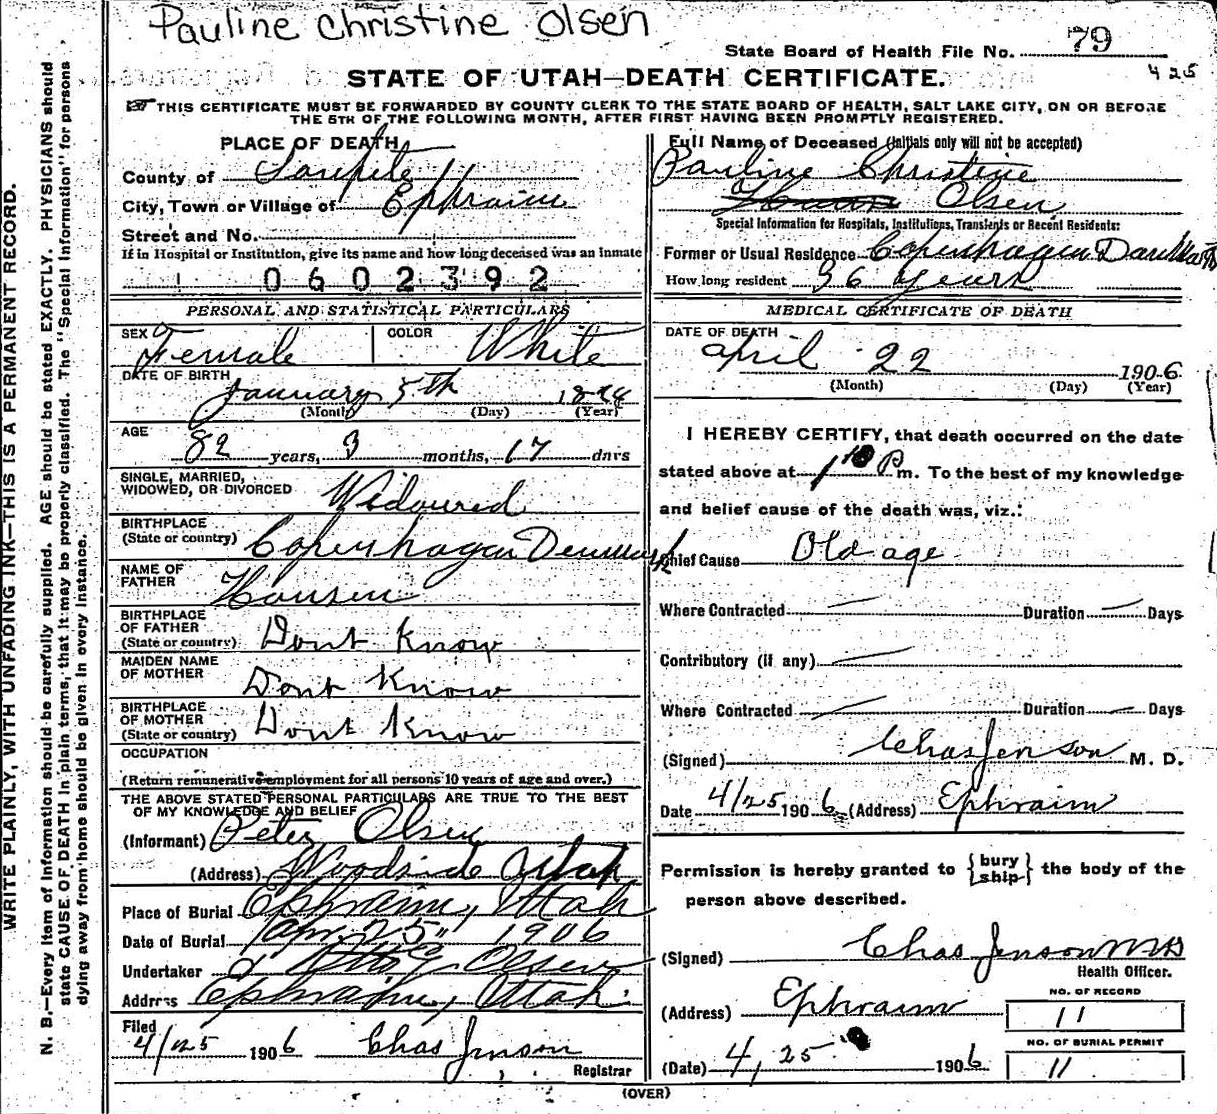 Pauline Christine Olsen
State Board of Health File No. 79
425
STATE OF UTAH—DEATH CERTIFICATE.
THIS CERTIFICATE MUST BE FORWARDED BY COUNTY CLERK TO THE STATE BOARD OF HEALTH, SALT LAKE CITY, ON OR BEFORE
THE 5TH OF THE FOLLOWING MONTH, AFTER FIRST HAVING BEEN PROMPTLY REGISTERED.
WRITE PLAINLY, WITH UNFADING INK—THIS IS A PERMANENT RECORD.
N. B.—Every item of information should be carefully supplied. AGE should be stated EXACTLY. PHYSICIANS should
state CAUSE OF DEATH in plain terms, that it may be properly classified. The "Special Information" for persons
dying away from home should be given in every instance.
PLACE OF DEATH
County of Sanpete
City, Town or Village of Ephraim
Street and No.
If in Hospital or Institution, give its name and how long deceased was an inmate
0602392
PERSONAL AND STATISTICAL PARTICULARS
SEX Female COLOR White
DATE OF BIRTH January 5th 1824
(Month) (Day) (Year)
AGE 82 years, 3 months, 17 days
SINGLE, MARRIED,
WIDOWED, OR DIVORCED Widowed
BIRTHPLACE
(State or country) Copenhagen Denmark
NAME OF
FATHER Hansen
BIRTHPLACE
OF FATHER
(State or country) Dont Know
MAIDEN NAME
OF MOTHER Dont Know
BIRTHPLACE
OF MOTHER
(State or country) Dont Know
OCCUPATION
(Return remunerative employment for all persons 10 years of age and over.)
THE ABOVE STATED PERSONAL PARTICULARS ARE TRUE TO THE BEST
OF MY KNOWLEDGE AND BELIEF
(Informant) Peter Olsen
(Address) Woodside Utah
Place of Burial Ephraim, Utah
Date of Burial Apr. 25" 1906
Undertaker Otto E Olsen
Address Ephraim, Utah.
Filed
4/25 1906 Chas Jenson
Registrar
Full Name of Deceased (Initials only will not be accepted)
Pauline Christine
Olsen
Special Information for Hospitals, Institutions, Transients or Recent Residents:
Former or Usual Residence Copenhagen Danmark
How long resident 36 years
MEDICAL CERTIFICATE OF DEATH
DATE OF DEATH
April 22 1906
(Month) (Day) (Year)
I HEREBY CERTIFY, that death occurred on the date
stated above at 1 10 P m. To the best of my knowledge
and belief cause of the death was, viz.:
Chief Cause Old age
Where Contracted — Duration — Days
Contributory (if any) —
Where Contracted — Duration — Days
(Signed) Chas Jenson M. D.
Date 4/25 1906 (Address) Ephraim
Permission is hereby granted to {bury ship} the body of the
person above described.
(Signed) Chas Jenson MD
Health Officer.
(Address) Ephraim
NO. OF RECORD
11
NO. OF BURIAL PERMIT
11
(Date) 4, 25 1906
(OVER)